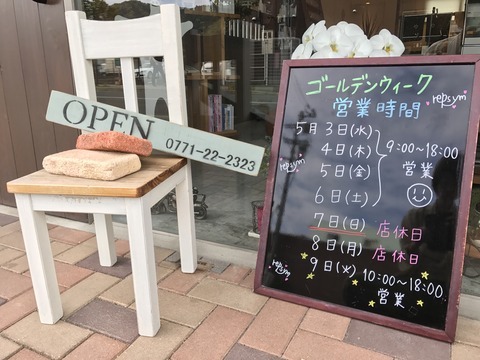 OPEN
0771-22-2323
ゴールデンウィーク
営業時間
repsym
5月3日(水)
4日(木)
5日(金)
6日(土)
9:00~18:00
営業
repsym
7日(日) 店休日
8日(月) 店休日
9日(火) 10:00~18:00
営業
repsym